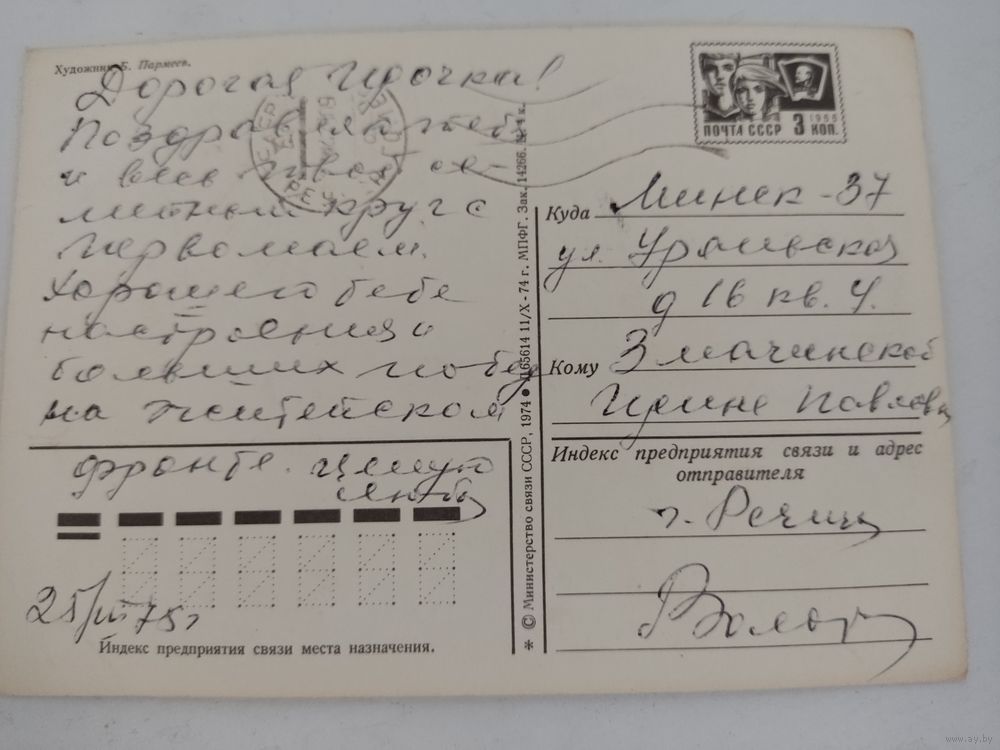 Художник Б. Пармеев.
Дорогая Ирочка!
Поздравляю тебя
и весь твой се-
мейный круг с
Первомаем.
Хорошего тебе
настроения и
больших побед
на житейском
фронте. Целую
25/ 75г
Индекс предприятия связи места назначения.
* © Министерство связи СССР, 1974 ● 65614 11/X-74 г. МПФГ. Зак. 14266. Ц. 4 к.
ПОЧТА СССР 3 КОП.
1966
Куда Минск-37
ул. Уральская
д 16 кв. 4.
Кому Змачинской
Ирине Павловне
Индекс предприятия связи и адрес
отправителя
г. Речица